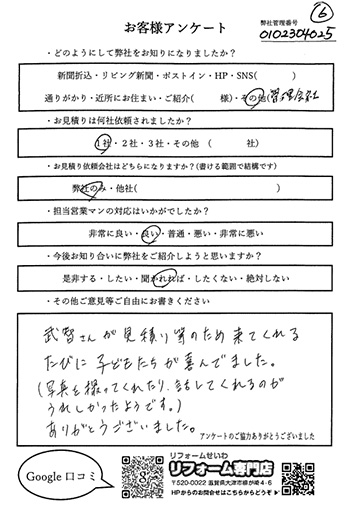 ⑥
お客様アンケート
弊社管理番号
0102304025
・どのようにして弊社をお知りになりましたか？
新聞折込・リビング新聞・ポストイン・HP・SNS(　　　)
通りがかり・近所にお住まい・ご紹介(　　　様)・その他(管理会社
・お見積りは何社依頼されましたか？
1社・2社・3社・その他　(　　　社)
・お見積り依頼会社はどちらになりますか？(書ける範囲で結構です)
弊社のみ・他社(　　　　　　　　)
・担当営業マンの対応はいかがでしたか？
非常に良い・良い・普通・悪い・非常に悪い
・今後お知り合いに弊社をご紹介しようと思いますか？
是非する・したい・聞かれれば・したくない・絶対しない
・その他ご意見等ご自由にお書きください
武智さんが見積り等のため来てくれる
たびに子どもたちが喜んでました。
(写真を撮ってくれたり、話してくれるのが
うれしかったようです。)
ありがとうございました。
アンケートのご協力ありがとうございました
Google口コミ
リフォームせいわ
リフォーム専門店
〒520-0022 滋賀県大津市柳が崎4-6
HPからのお問合せはこちらからどうぞ▶